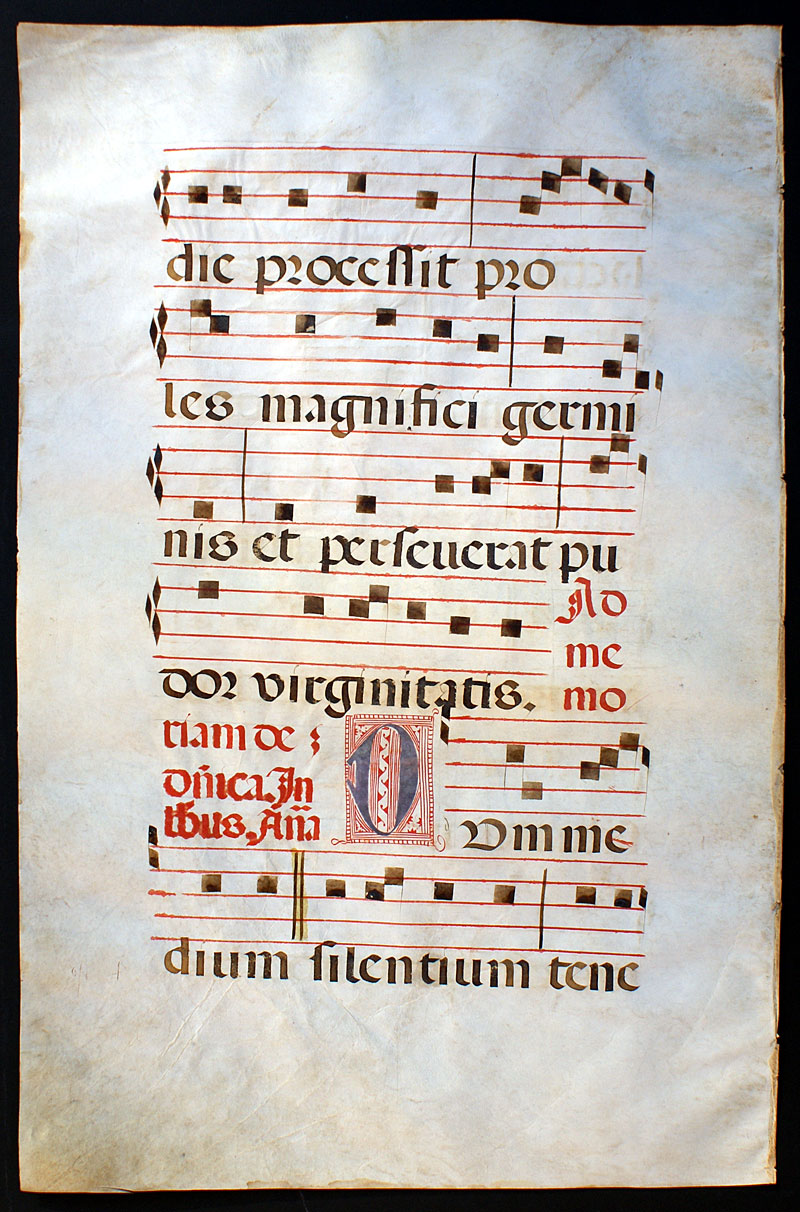 die processit pro
les magnifici germi
nis et perseuerat pu
dor virginitatis. Ad
me
mo
riam de
dñica. In
lbus. Añа
Dum me
dium silentium tene